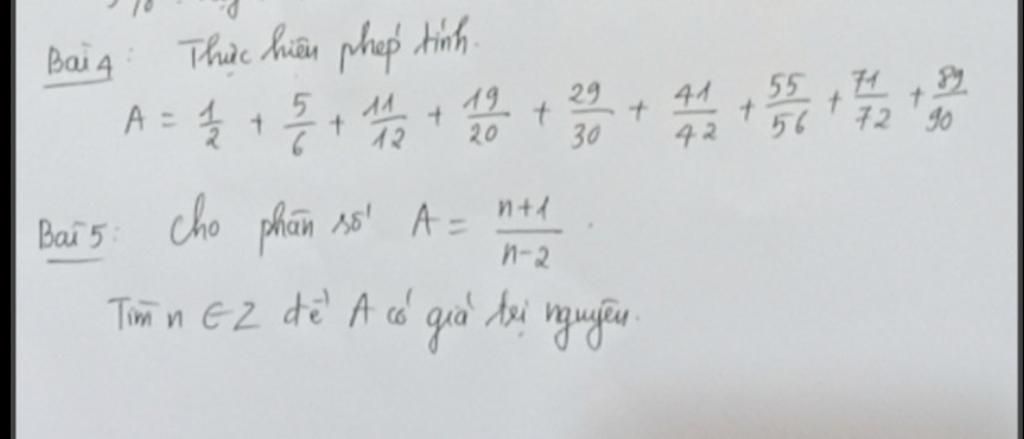 Bài 4: Thực hiện phép tính.
A = 1/2 + 5/6 + 11/12 + 19/20 + 29/30 + 41/42 + 55/56 + 71/72 + 89/90
Bài 5: Cho phân số A = n+1/n-2.
Tìm n ∈ Z để A có giá trị nguyên.